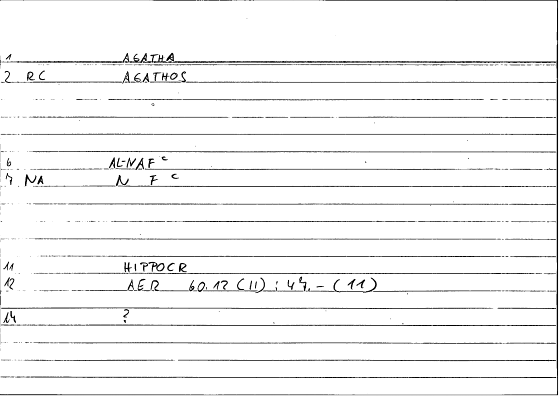 1 AGATHA
2 RC AGATHOS
6 AL-NAFC
7 NA N F C
11 HIPPOCR
12 AER 60.12 (11) : 47.- (11)
14 ?